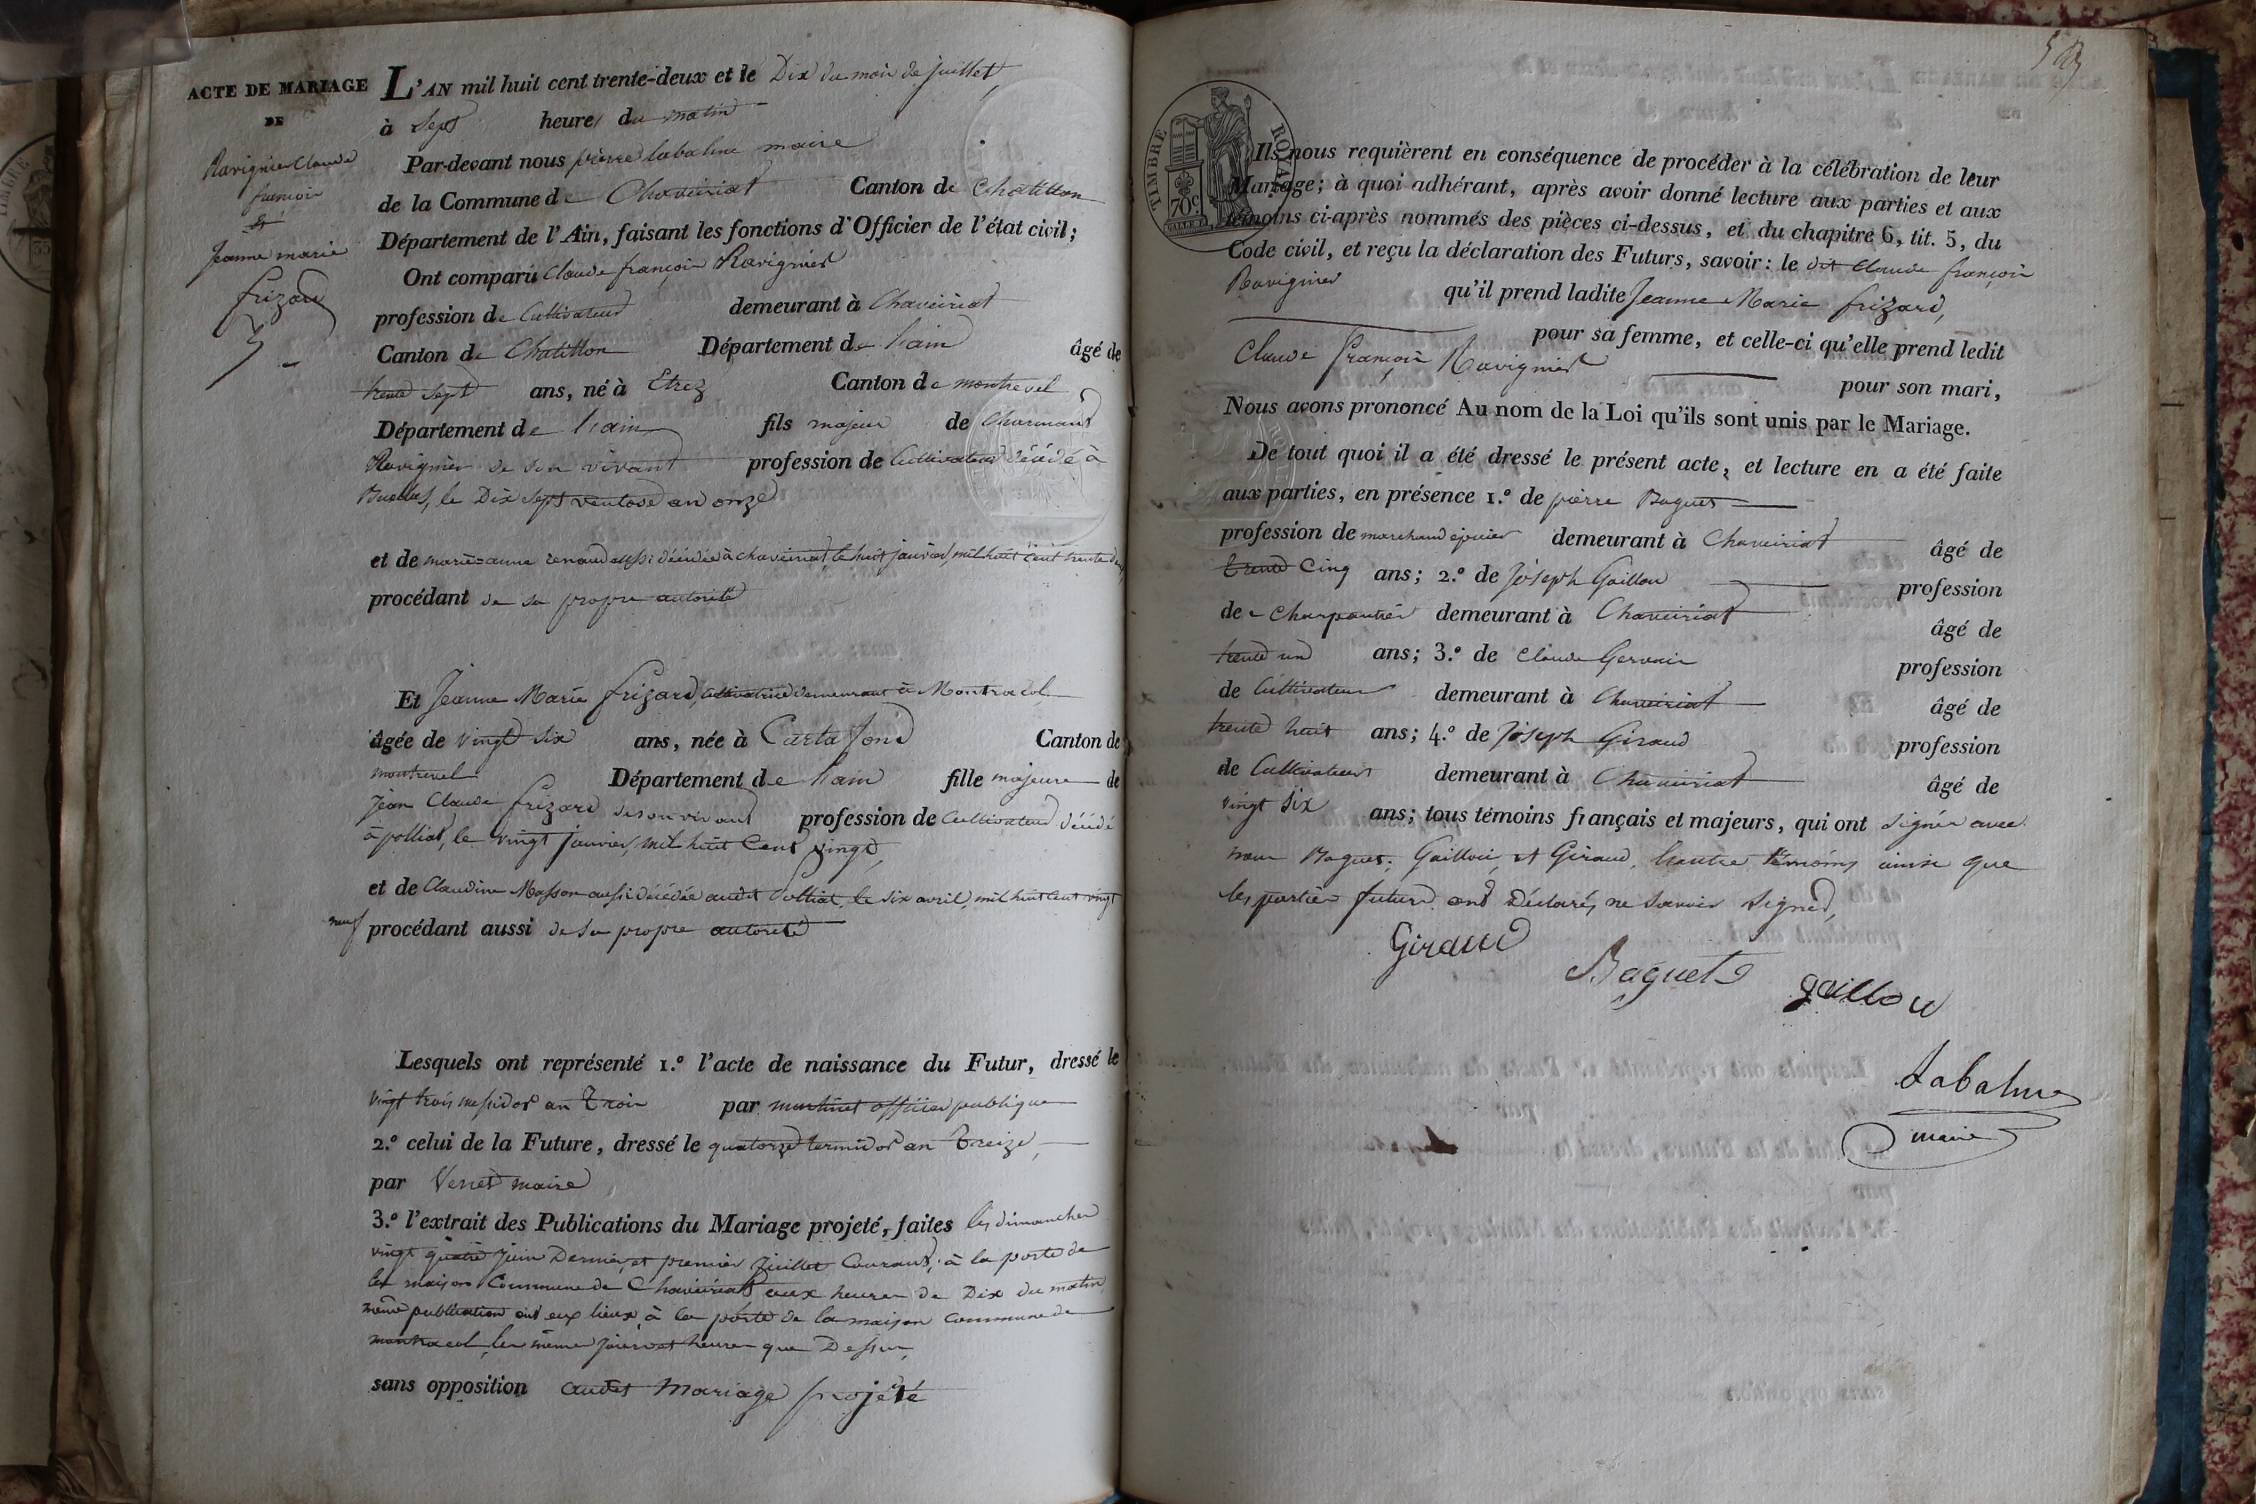 ACTE DE MARIAGE
DE
Ravignier Claude
françois
et
Jeanne marie
frizard
L'AN mil huit cent trente-deux et le Dix du mois de juillet,
à Sept heures du matin
Par-devant nous pierre labalme maire
de la Commune de Chaveiriat Canton de Chatillon
Département de l'Ain, faisant les fonctions d'Officier de l'état civil;
Ont comparu Claude françois Ravignier
profession de Cultivateur demeurant à Chaveiriat
Canton de Chatillon Département de l'ain âgé de
trente sept ans, né à Etrez Canton de montrevel
Département de l'ain fils majeur de
Ravignier de son vivant profession de Cultivateur décédé à
Buellas, le Dix sept ventose an onze
et de marie-anne renaud aussi décédée à chaveiriat, le huit janvier, mil huit cent trente deux
procédant de sa propre autorité
Et Jeanne Marie frizard, cultivatrice demeurant à Montracol
âgée de vingt six ans, née à Curtafond Canton de
montrevel Département de l'ain fille majeure de
Jean Claude frizard de son vivant profession de Cultivateur décédé
à polliat, le vingt janvier, mil huit Cent vingt,
et de Claudine Masson aussi décédée audit Polliat, le six avril, mil huit cent vingt
neuf procédant aussi de sa propre autorité
Lesquels ont représenté 1.º l'acte de naissance du Futur, dressé le
vingt trois messidor an Trois par martinet officier publique
2.º celui de la Future, dressé le quatorze termidor an Treize,
par Venet maire
3.º l'extrait des Publications du Mariage projeté, faites les dimanches
vingt quatre juin Dernier, et premier Juillet Courant, à la porte de
la maison Commune de Chaveiriat aux heures de Dix du matin,
même publication ont eux lieux à la porte de la maison commune de
montracol, les même jours et heures que Dessus,
sans opposition audit Mariage projeté
TIMBRE ROYAL
70c
Ils nous requièrent en conséquence de procéder à la célébration de leur
Mariage; à quoi adhérant, après avoir donné lecture aux parties et aux
témoins ci-après nommés des pièces ci-dessus, et du chapitre 6, tit. 5, du
Code civil, et reçu la déclaration des Futurs, savoir: le dit Claude françois
Ravignier qu'il prend ladite Jeanne Marie frizard,
pour sa femme, et celle-ci qu'elle prend ledit
Claude françois Ravignier pour son mari,
Nous avons prononcé Au nom de la Loi qu'ils sont unis par le Mariage.
De tout quoi il a été dressé le présent acte, et lecture en a été faite
aux parties, en présence 1.º de pierre Baguet
profession de marchand épicier demeurant à Chaveiriat âgé de
trente Cinq ans; 2.º de Joseph Gaillou profession
de Charpentier demeurant à Chaveiriat âgé de
trente un ans; 3.º de Claude Gervais profession
de Cultivateur demeurant à Chaveiriat âgé de
trente huit ans; 4.º de Joseph Giraud profession
de Cultivateur demeurant à Chaveiriat âgé de
vingt six ans; tous témoins français et majeurs, qui ont signés avec
nous Baguet, Gaillou, et Giraud, l'autre témoins ainsi que
les parties futurs ont Déclarés, ne savoir signer,
Giraud
Baguet
gaillou
Labalme
maire